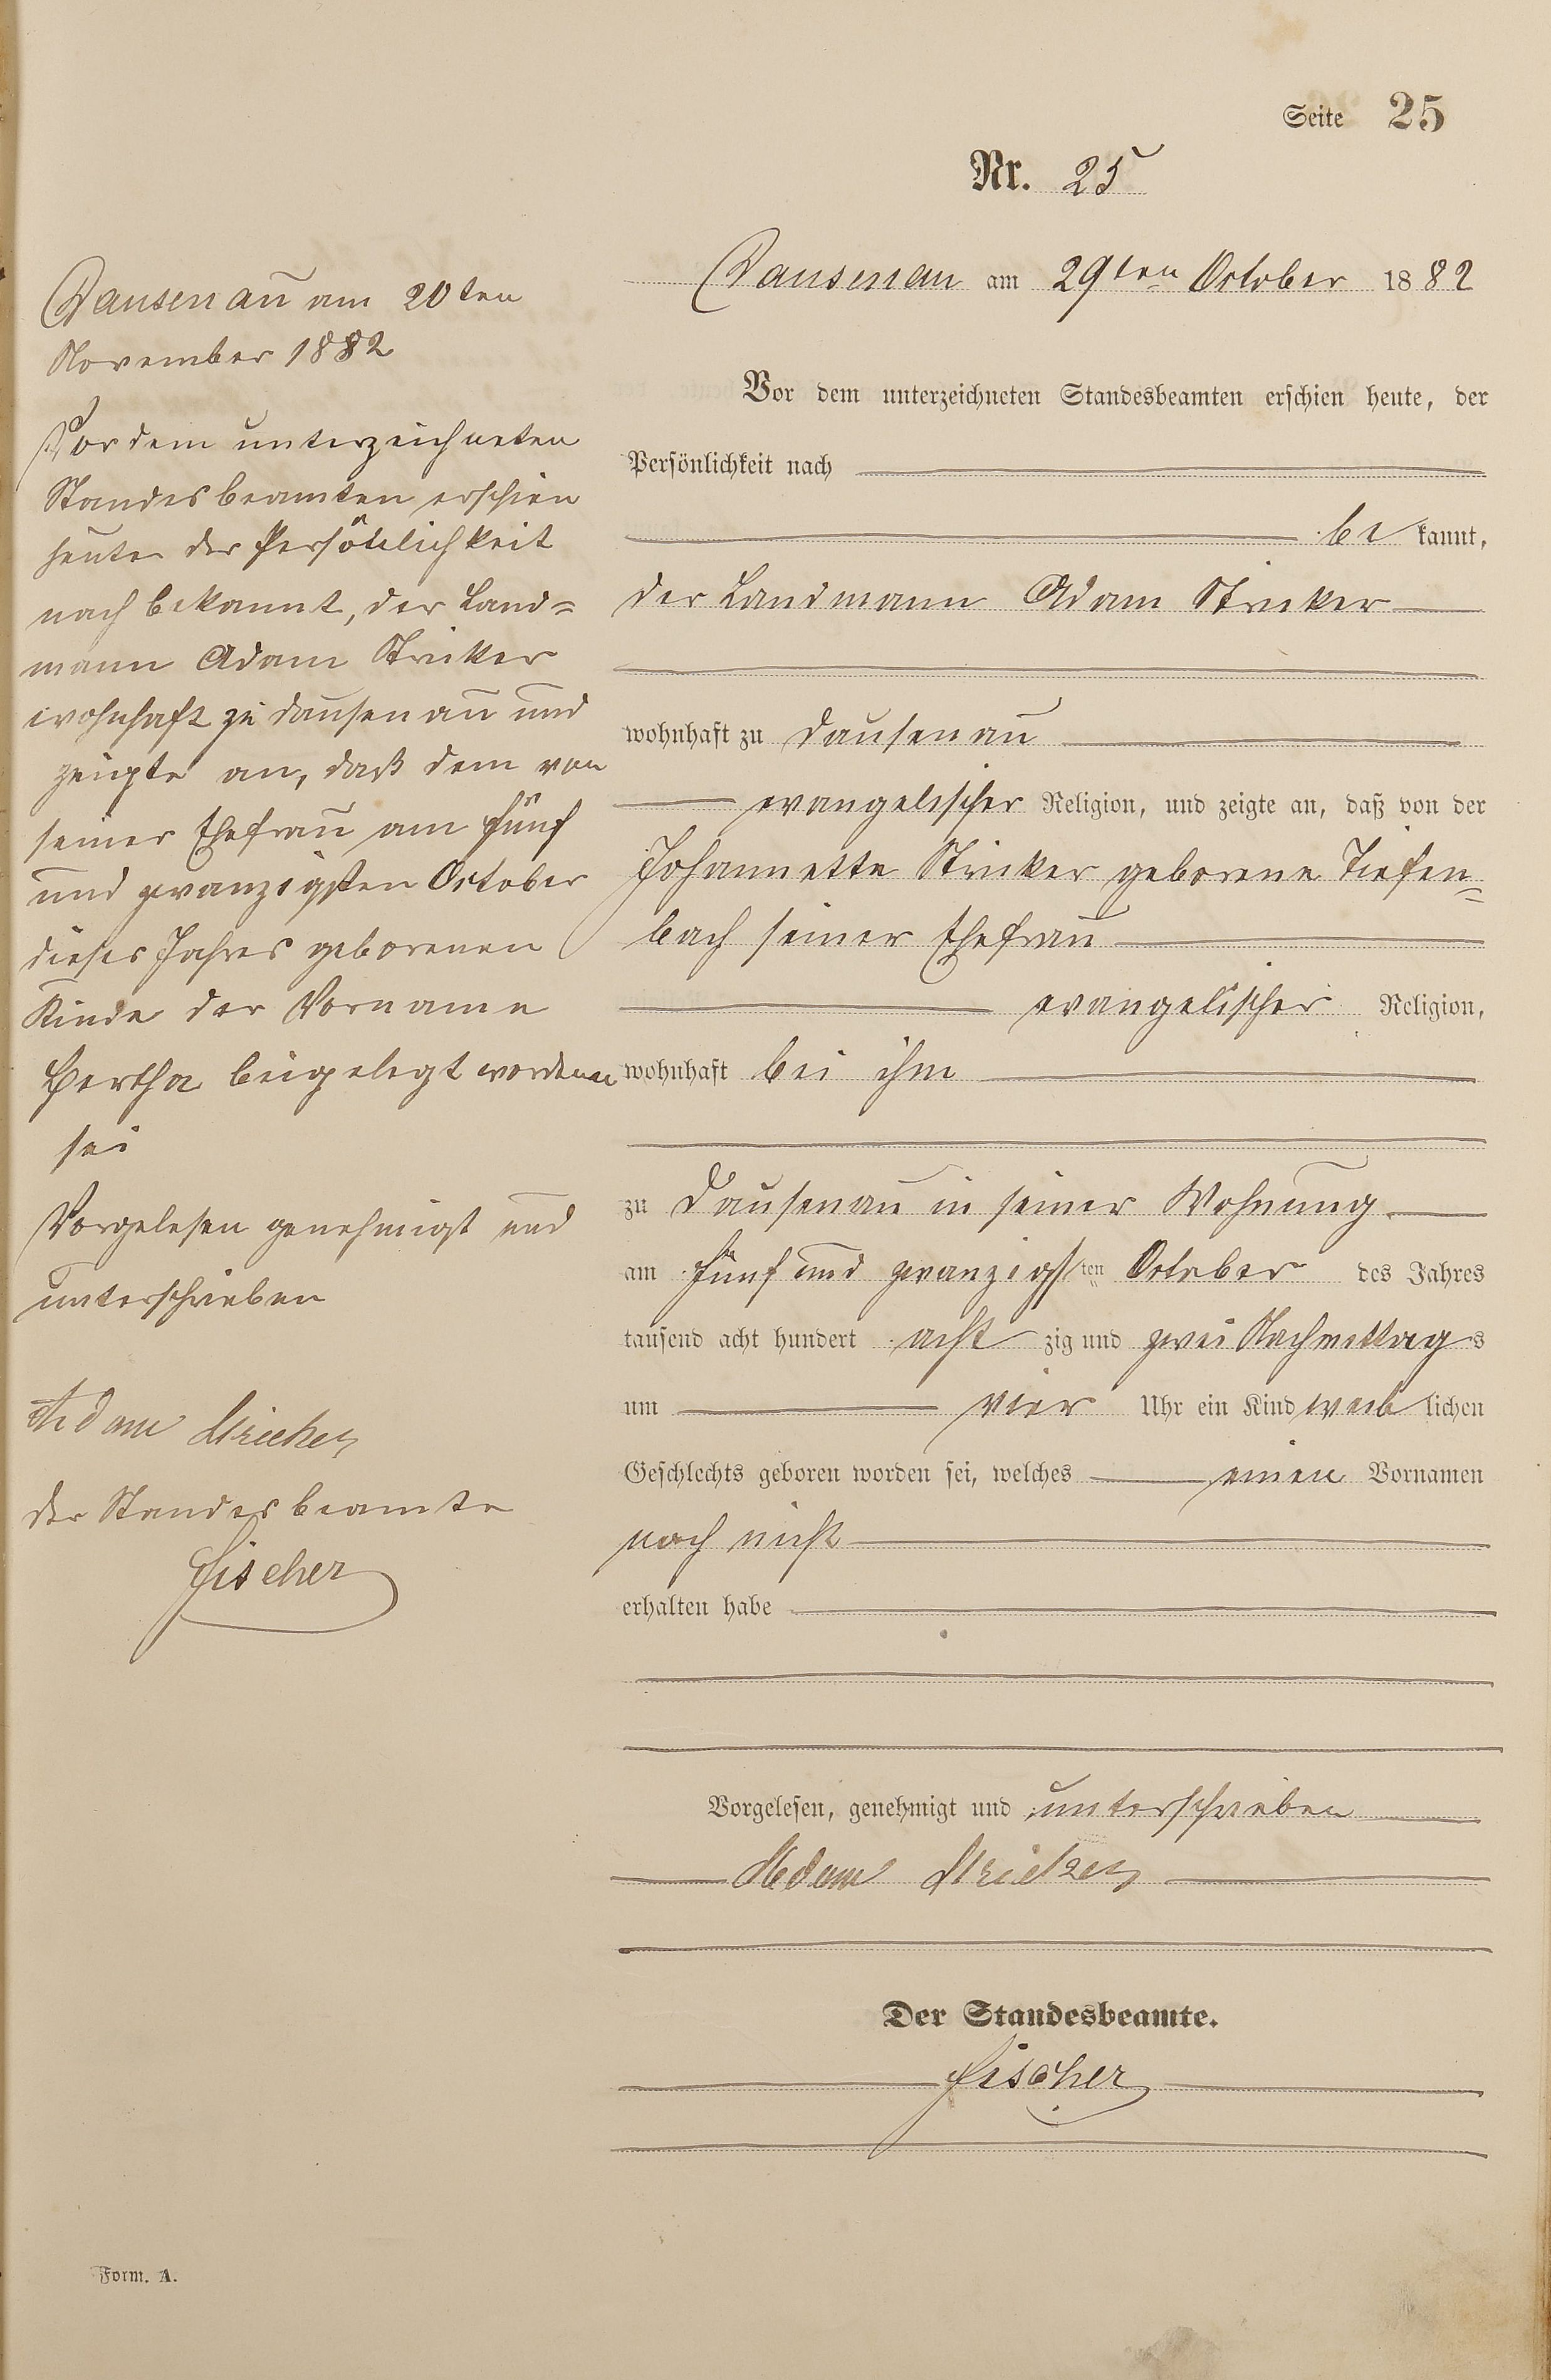 Seite 25
Nr. 25
Dausenau am 29ten October 1882
Vor dem unterzeichneten Standesbeamten erschien heute, der
Persönlichkeit nach
be kannt,
der Landmann Adam Stricker
wohnhaft zu Dausenau
evangelischer Religion, und zeigte an, daß von der
Johannette Stricker geborene Tiefen=
bach seiner Ehefrau
evangelischer Religion,
wohnhaft bei ihm
zu Dausenau in seiner Wohnung
am fünf und zwanzigsten October des Jahres
tausend acht hundert acht zig und zwei Nachmittags
um vier Uhr ein Kind weib lichen
Geschlechts geboren worden sei, welches einen Vornamen
noch nicht
erhalten habe
Vorgelesen, genehmigt und unterschrieben
Adam Stricker
Der Standesbeamte.
Fischer
Dausenau am 20ten
November 1882
Vor dem unterzeichneten
Standesbeamten erschien
heute der Persönlichkeit
nach bekannt, der Land=
mann Adam Stricker
wohnhaft zu Dausenau und
zeigte an, daß dem von
seiner Ehefrau am fünf
und zwanzigsten October
dieses Jahres geborenen
Kinde der Vorname
Bertha beigelegt worden
sei
Vorgelesen genehmigt und
unterschrieben
Adam Stricker
der Standesbeamte
Fischer
Form. A.